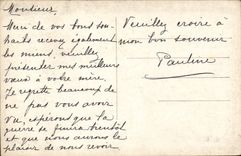 Monsieur
Merci de vos bons sou-
haits recevez également
les miens, veuillez
présenter mes meilleurs
vœux à votre mère,
Je regrette beaucoup de
ne pas vous avoir
vu, espérons que la
guerre se finira bientôt
et que nous aurons le
plaisir de nous revoir
Veuillez croire à
mon bon souvenir
Pauline